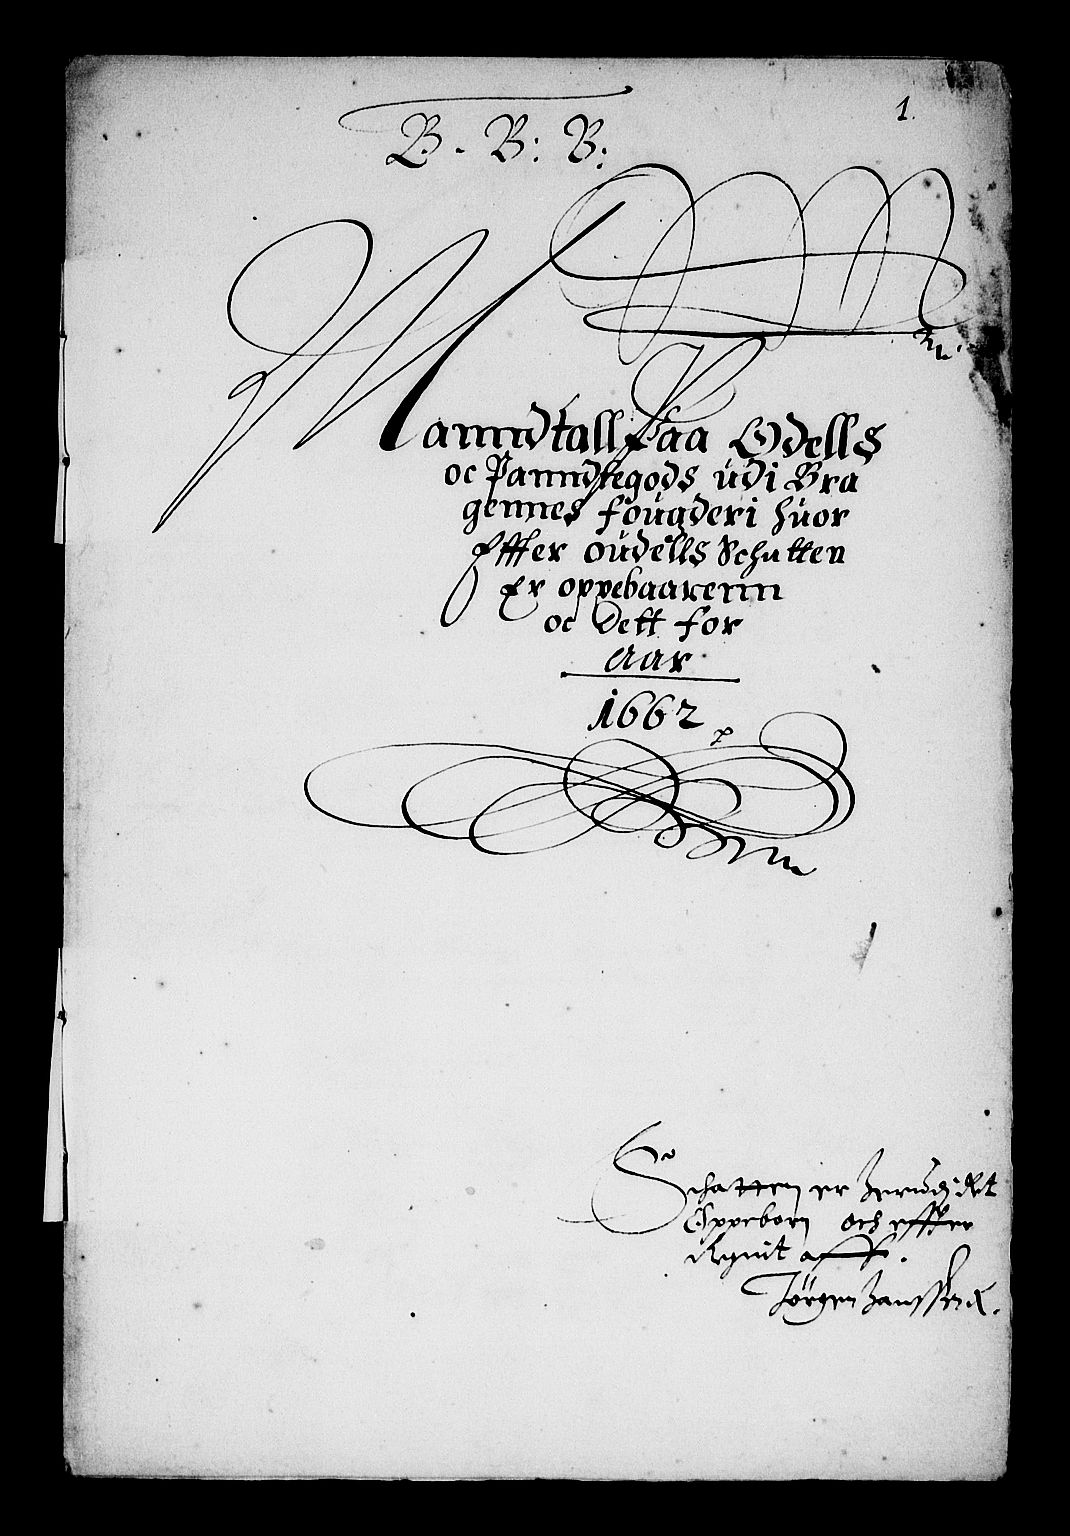 1.
B. B: B:
Manndtall Paa Odells
oc Panndtegods udi Bra
gennes fougderi huor
Effter oudells Schatten
Er oppebaarenn
oc Dett for
Aar
1662
Schatten er
Oppeborn och effter
aff.
Jørgen Janssen